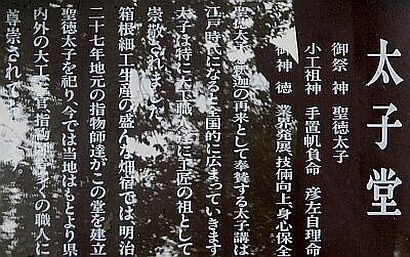 太子堂
御祭神 聖徳太子
小工祖神 手置帆負命 彦左自理命
御神徳 業務発展、技倆向上、身心保全
聖徳太子 釈迦の再来として奉賛する太子講は
江戸時代になると全国的に広まっていきます
太子は特に木工職人 に工匠の祖として
崇敬されました
箱根細工生産の盛んな畑宿では、明治
二十七年地元の指物師達がこの堂を建立
聖徳太子を祀り今では当地はもとより県
内外の大工、 官指物師 多くの職人に
尊崇されて